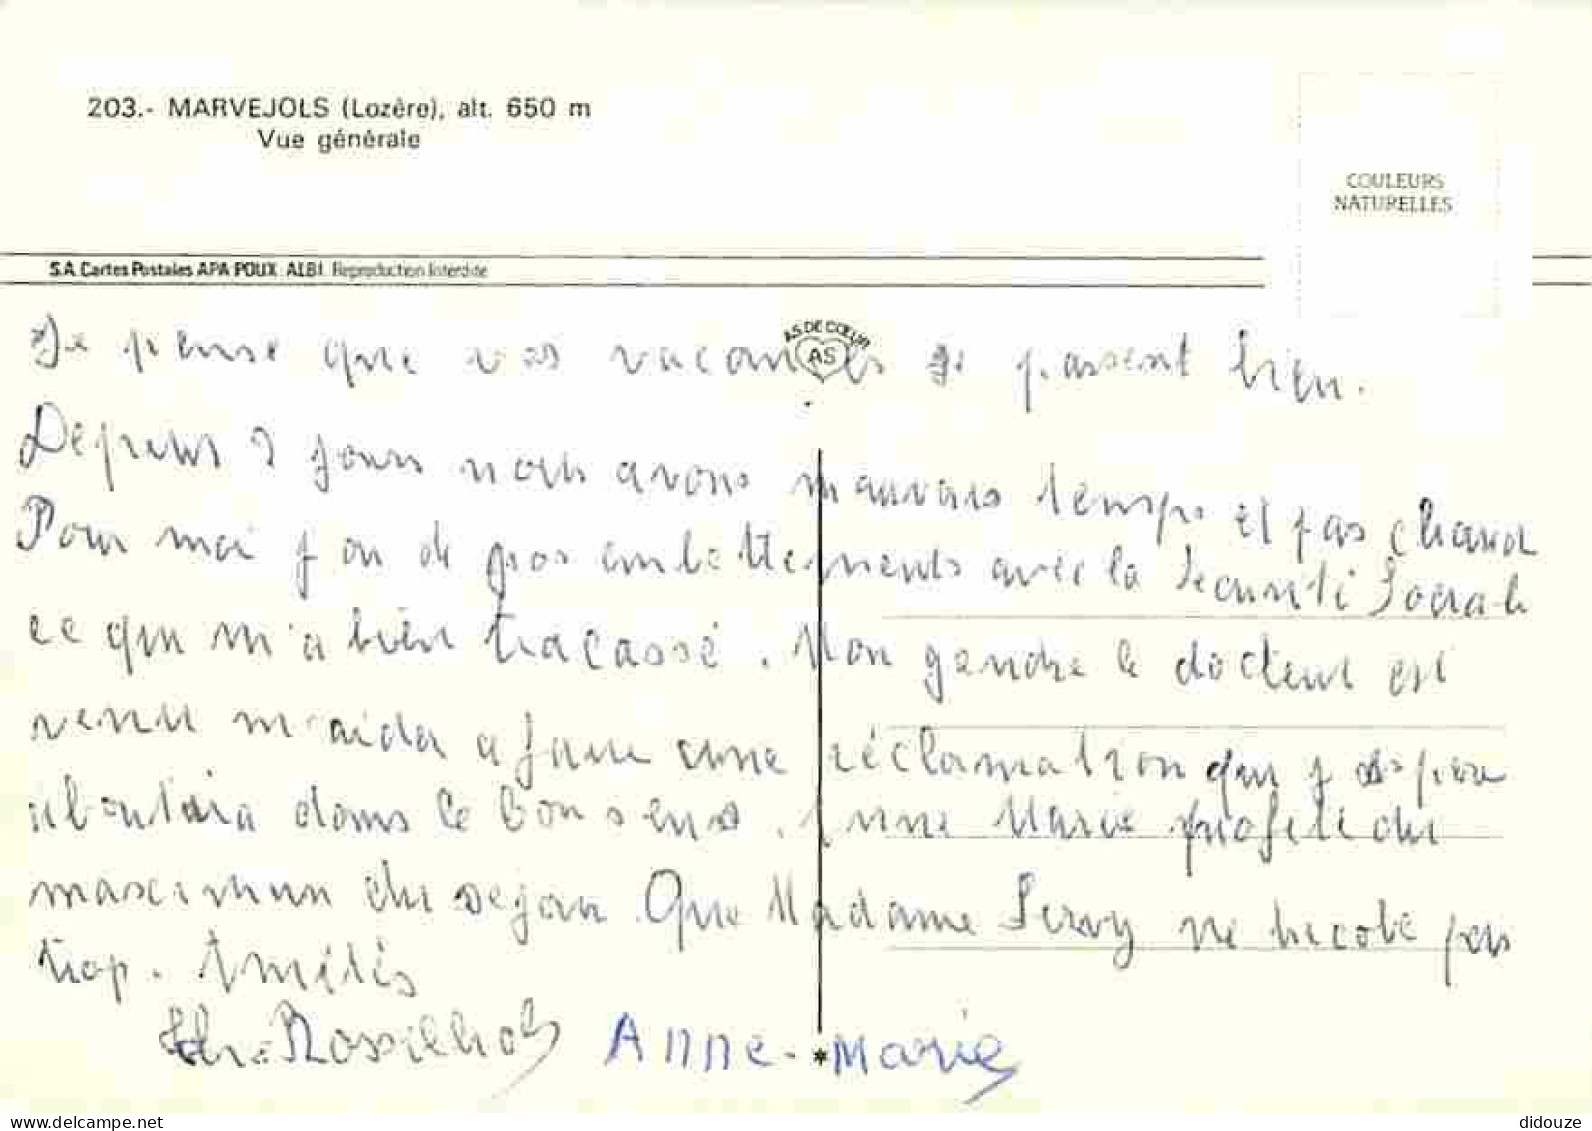 203.- MARVEJOLS (Lozère), alt. 650 m
Vue générale
COULEURS
NATURELLES
S.A. Cartes Postales APA-POUX ALBI Reproduction Interdite
AS DE CŒUR
AS
Je pense que vos vacances se passent bien.
Depuis 2 jours nous avons mauvais temps et pas chaud
Pour moi j'ai de gros embettements avec la Securité Sociale
ce qui m'a bien tracassé. Mon gendre le docteur est
venu m'aider a faire une réclamation qui j'espere
aboutira dans le bon sens. Anne Marie profite du
mascimum du sejour Que Madame Servy ne bricole pas
trop. Amitiés
Rossilhol Anne-Marie
delcampe.net
didouze